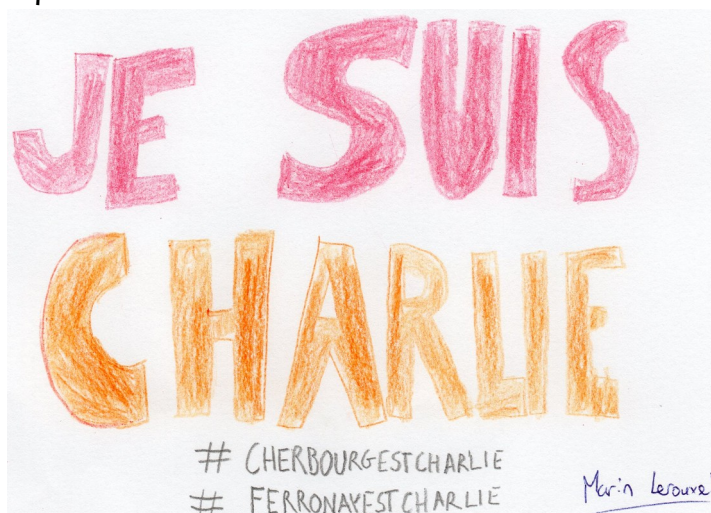 JE SUIS
CHARLIE
# CHERBOURGESTCHARLIE
# FERRONAYESTCHARLIE
Marin